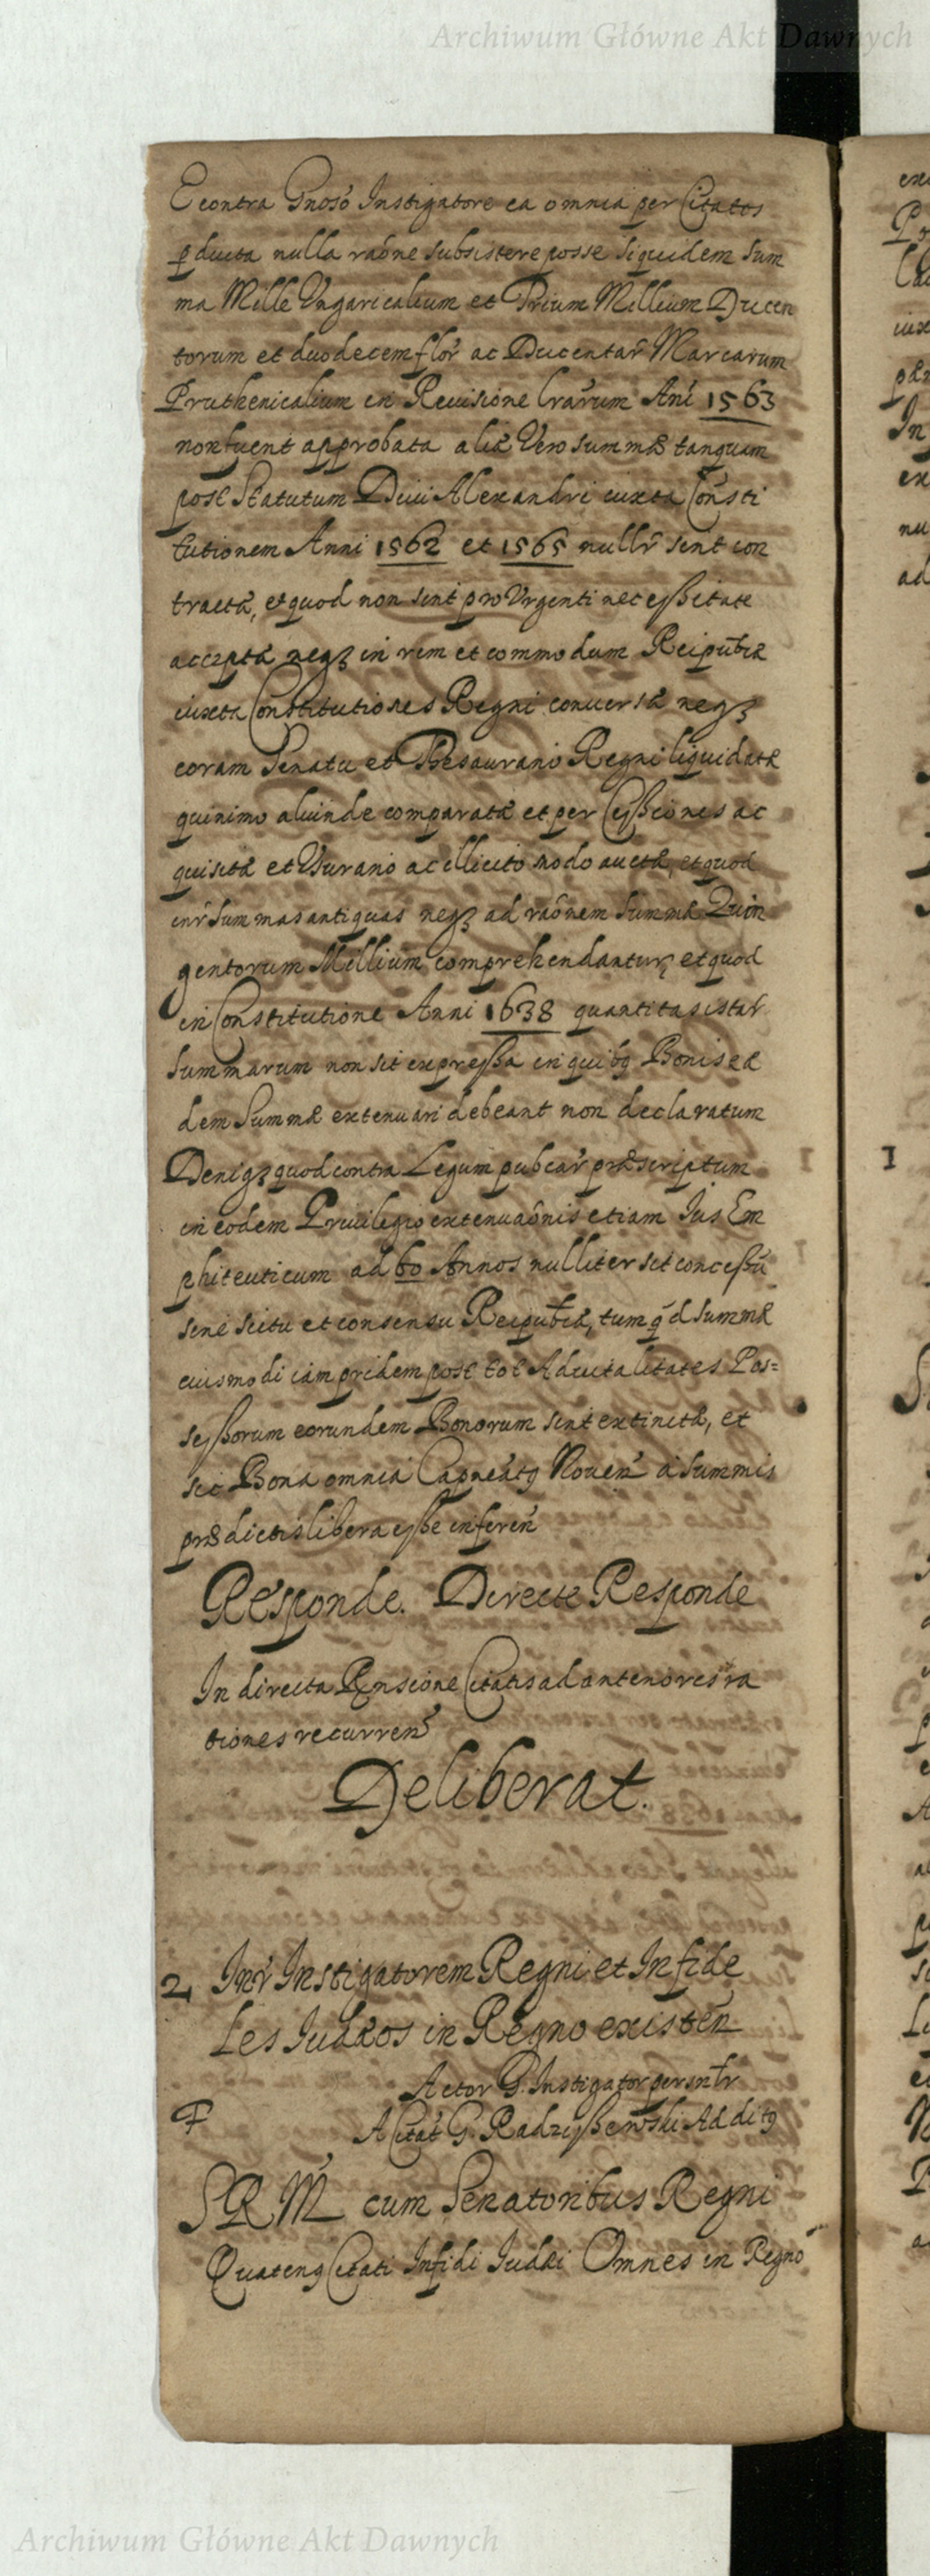 Archiwum Główne Akt Dawnych
Econtra Gnoso Instigatore ea omnia per Citatos
pducta nulla raone subsistere posse siquidem sum
ma Mille Ungaricalium et Trium Millium Ducen
torum et duodecem flor ac Ducentar Marcarum
Pruthenicalium in Revisione lrarum Ani 1563
non fuerit approbata aliæ Vero summæ tanquam
post Statutum Divi Alexandri iuxta Consti
tutionem Anni 1562 et 1565 nullr sint con
tractæ, et quod non sint pro Urgenti necessitate
acceptæ neqз in rem et commodum Reipubcæ
iuxta Constitutiones Regni conversæ neqз
coram Senatu et Thesaurario Regni liquidatæ
quinimo aliunde comparatæ et per Cessiones ac
quisitæ et Usurario ac illicito modo auctæ, et quod
inr summas antiquas neqз ad raonem summæ Quin
gentorum Millium comprehendantur, et quod
in Constitutione Anni 1638 quantitas istar
summarum non sit expressa in quibq Bonis eæ
dem summæ extenuari debeant non declaratum
Deniqз quod contra Legum pubcar præscriptum
in eodem Privilegio extenuaonis etiam Ius Em
phiteuticum ad 60 Annos nulliter sit concessu
sine scitu et consensu Reipubcæ, tum qd summæ
eiusmodi iam pridem post tot Advitalitates Pos=
sessorum eorundem Bonorum sint extinctæ, et
sic Bona omnia Capneatq Noven a summis
prædictis libera esse inferen
Responde. Directe Responde
In directa Rnsione Citatis ad anteriores ra
tiones recurren
Deliberat.
2, Inr Instigatorem Regni et Infide
les Iudæos in Regno existen
Actor G. Instigator persnlr
A Citat G. Radzissewski Additq
SRM cum Senatoribus Regni
Quatenq Citati Infidi Iudæi Omnes in Regno
Archiwum Główne Akt Dawnych